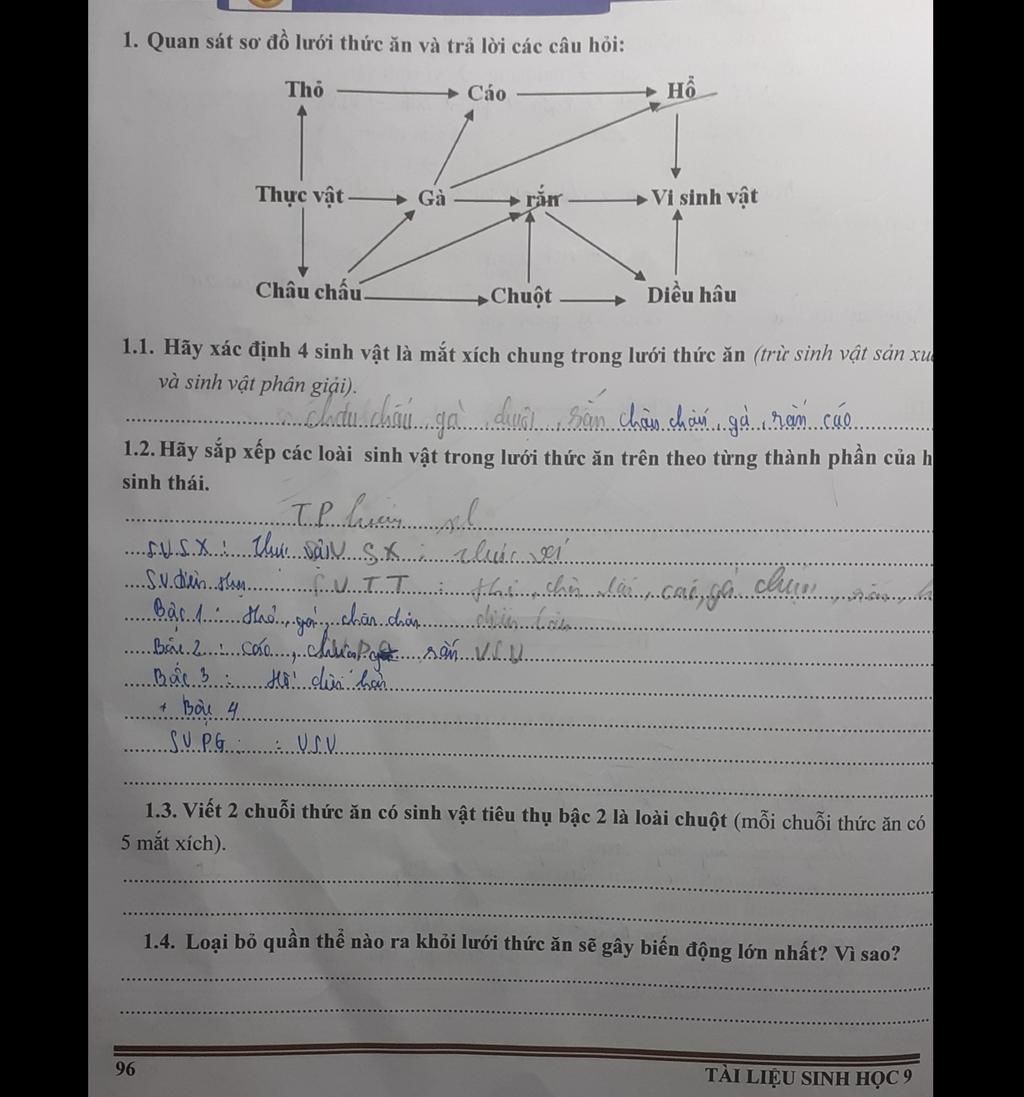 1. Quan sát sơ đồ lưới thức ăn và trả lời các câu hỏi:
Thỏ Cáo Hổ
Thực vật Gà rắn Vi sinh vật
Châu chấu Chuột Diều hâu
1.1. Hãy xác định 4 sinh vật là mắt xích chung trong lưới thức ăn (trừ sinh vật sản
và sinh vật phân giải).
châu chấu, gà, rắn chân chấn, gà, rắn cáo
1.2. Hãy sắp xếp các loài sinh vật trong lưới thức ăn trên theo từng thành phần của
sinh thái.
T.P
S.V.S.X: S.X:
S.V.T.T:
Bậc 1: thỏ, gà
Bậc 2: cáo, rắn V.S.V
Bậc 3: Hổ
+ Bậc 4
S.V.P.G: : V.S.V
1.3. Viết 2 chuỗi thức ăn có sinh vật tiêu thụ bậc 2 là loài chuột (mỗi chuỗi thức ăn có
5 mắt xích).
1.4. Loại bỏ quần thể nào ra khỏi lưới thức ăn sẽ gây biến động lớn nhất? Vì sao?
96
TÀI LIỆU SINH HỌC 9